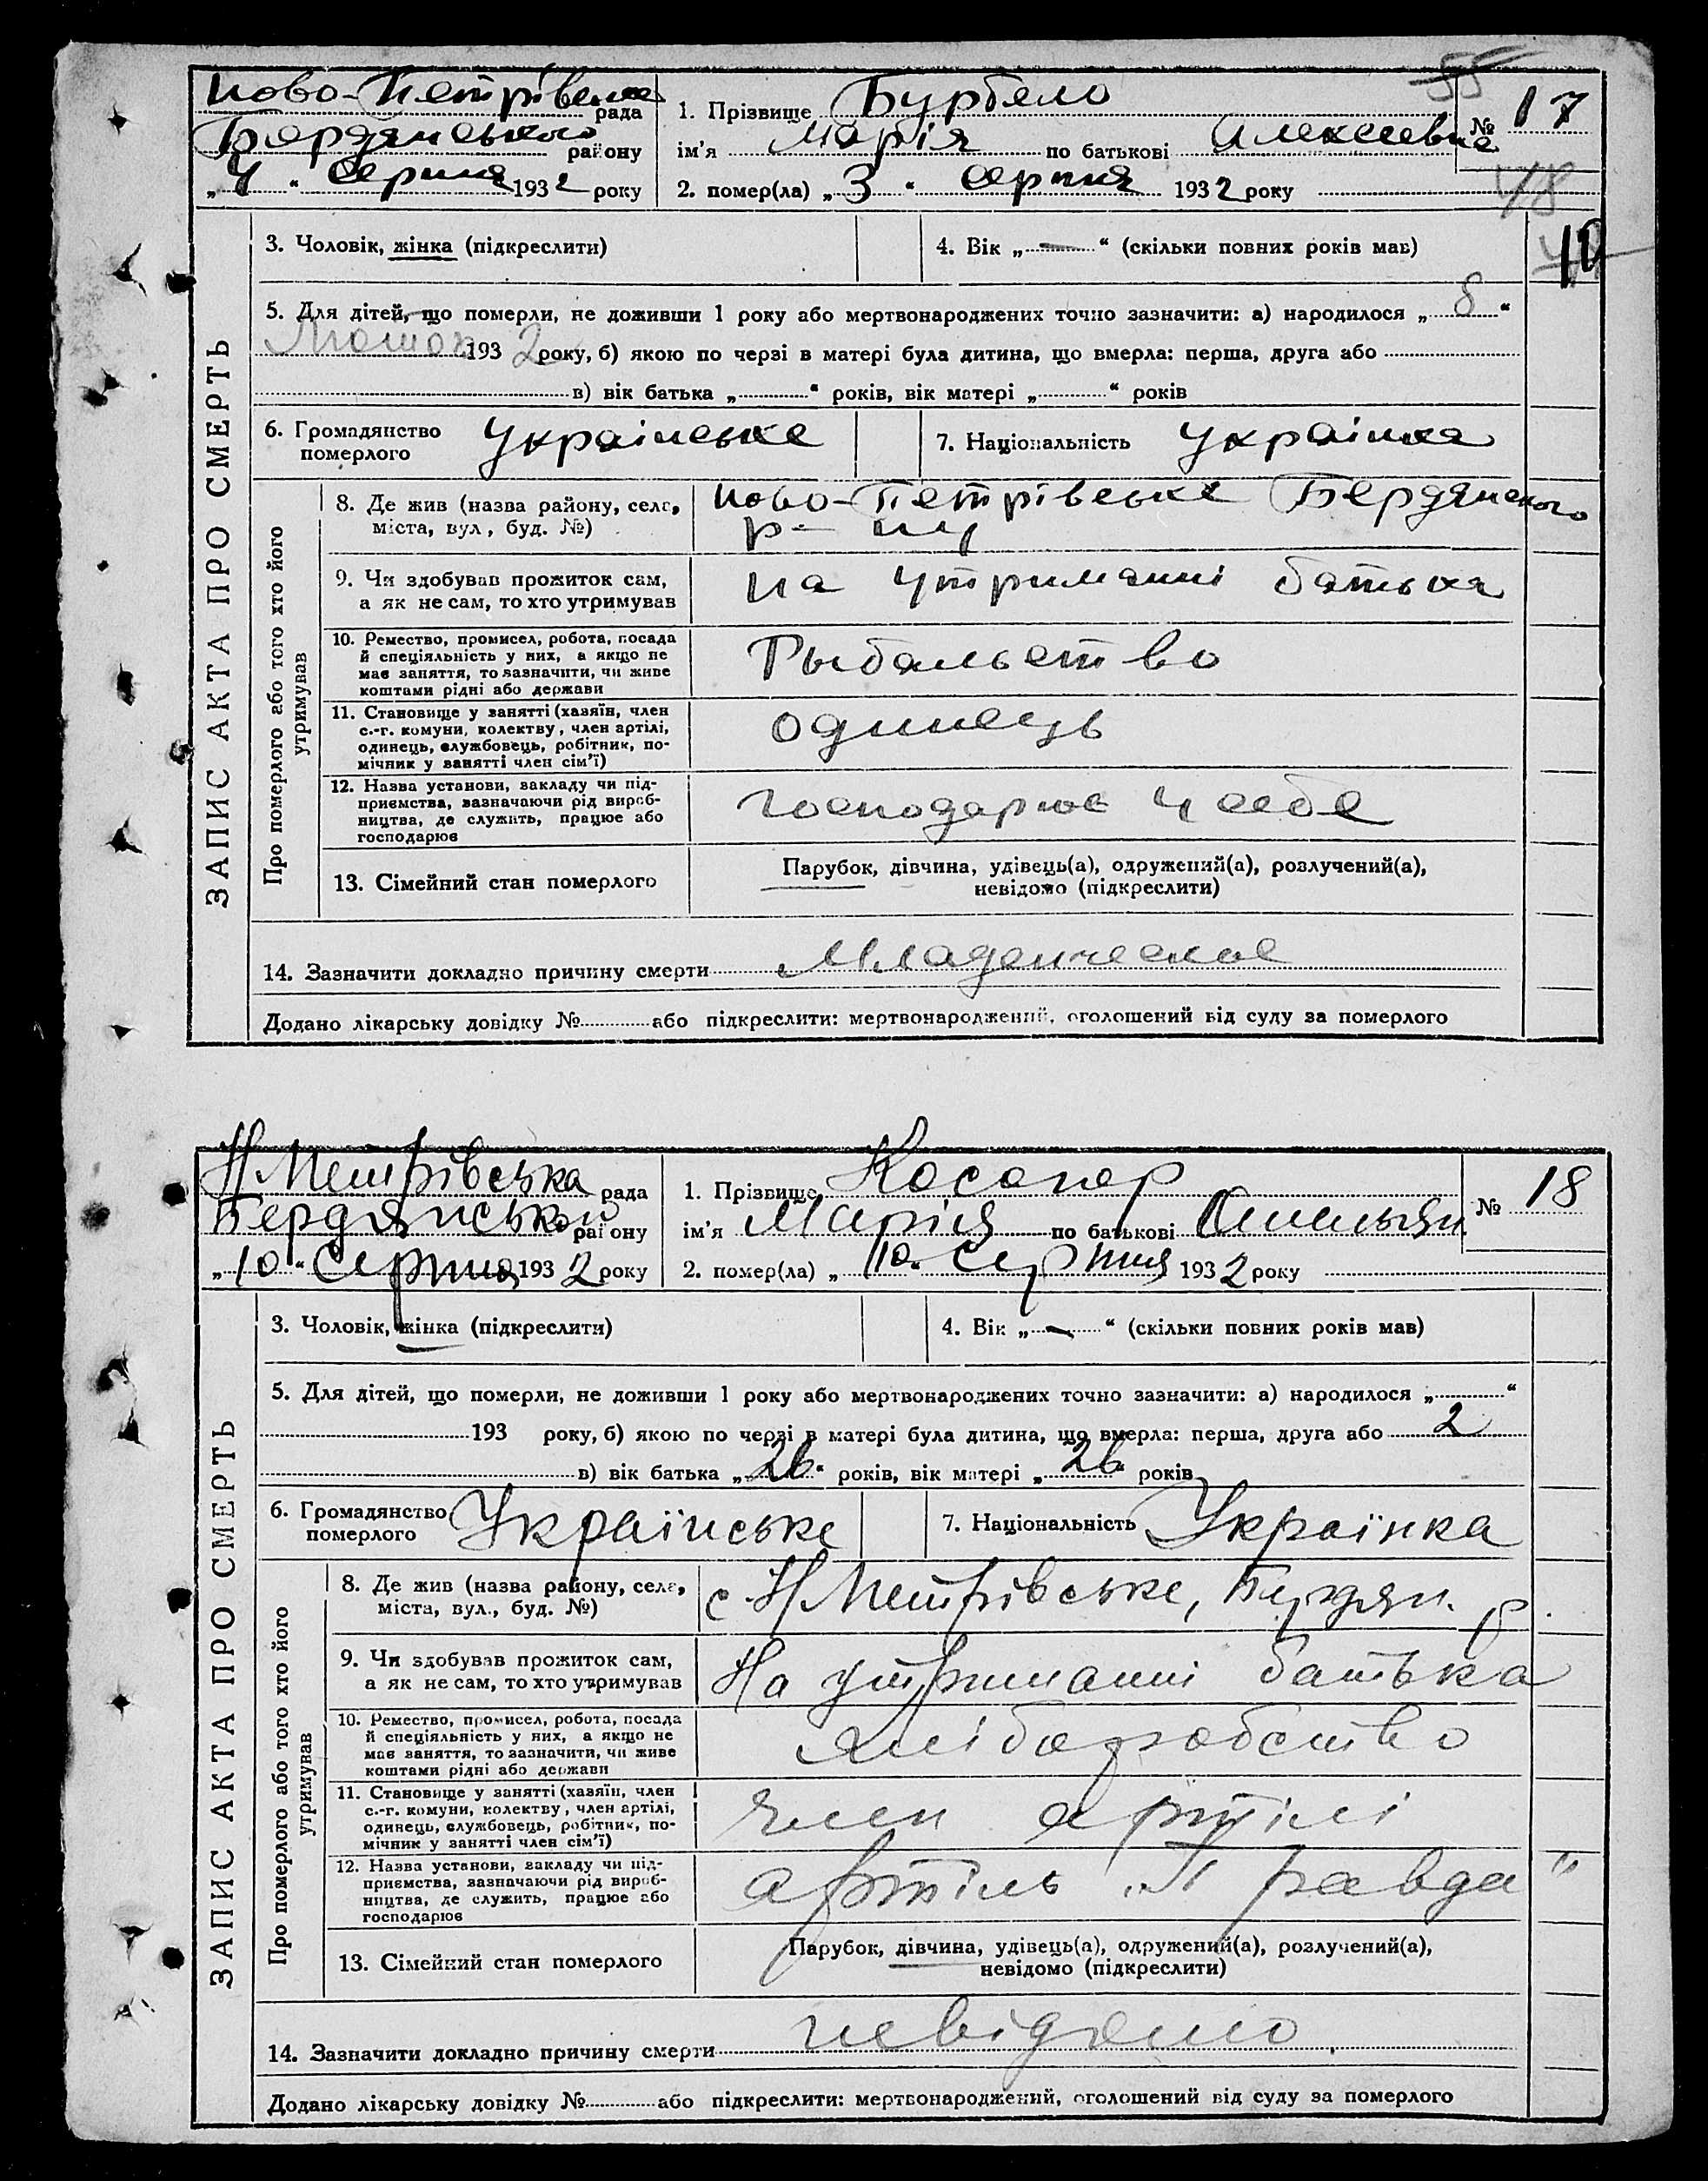 55
Ново-Петрівська рада
Бердянського району
„4" Серпня 1932 року
1. Прізвище Бурбело
ім'я Марія по батькові Алексеевна
№ 17
2. помер(ла) „3" серпня 1932 року
48
ЗАПИС АКТА ПРО СМЕРТЬ
3. Чоловік, жінка (підкреслити)
4. Вік „—" (скільки повних років мав)
10
5. Для дітей, що померли, не доживши 1 року або мертвонароджених точно зазначити: а) народилося „8"
Лютого 1932 року, б) якою по черзі в матері була дитина, що вмерла: перша, друга або
в) вік батька „ " років, вік матері „ " років
6. Громадянство померлого Українське
7. Національність Українка
Про померлого або того хто його утримував
8. Де жив (назва району, села, міста, вул., буд. №)
Ново-Петрівське Бердянского
р-ну
9. Чи здобував прожиток сам, а як не сам, то хто утримував
на утриманні батька
10. Ремество, промисел, робота, посада
й спеціяльність у них, а якщо не
має заняття, то зазначити, чи живе
коштами рідні або держави
Рыбальство
11. Становище у занятті (хазяїн, член
с.-г. комуни, колективу, член артілі,
одинець, службовець, робітник, по-
мічник у занятті член сім'ї)
одинець
12. Назва установи, закладу чи під-
приємства, зазначаючи рід вироб-
ництва, де служить, працює або
господарює
господарює у себе
13. Сімейний стан померлого
Парубок, дівчина, удівець(а), одружений(а), розлучений(а),
невідомо (підкреслити)
14. Зазначити докладно причину смерти Младенческое
Додано лікарську довідку № або підкреслити: мертвонароджений, оголошений від суду за померлого
Н/Петрівська рада
Бердянського району
„10" Серпня 1932 року
1. Прізвище Косогор
ім'я Марія по батькові
№ 18
2. помер(ла) „10" Серпня 1932 року
ЗАПИС АКТА ПРО СМЕРТЬ
3. Чоловік, жінка (підкреслити)
4. Вік „—" (скільки повних років мав)
5. Для дітей, що померли, не доживши 1 року або мертвонароджених точно зазначити: а) народилося „ "
193 року, б) якою по черзі в матері була дитина, що вмерла: перша, друга або 2
в) вік батька „26" років, вік матері „26" років
6. Громадянство померлого Українське
7. Національність Українка
Про померлого або того хто його утримував
8. Де жив (назва району, села, міста, вул., буд. №)
с Н/Петрівське, Бердян. р.
9. Чи здобував прожиток сам, а як не сам, то хто утримував
На утриманні батька
10. Ремество, промисел, робота, посада
й спеціяльність у них, а якщо не
має заняття, то зазначити, чи живе
коштами рідні або держави
хлібаробство
11. Становище у занятті (хазяїн, член
с.-г. комуни, колективу, член артілі,
одинець, службовець, робітник, по-
мічник у занятті член сім'ї)
член артілі
12. Назва установи, закладу чи під-
приємства, зазначаючи рід вироб-
ництва, де служить, працює або
господарює
артіль „Правда"
13. Сімейний стан померлого
Парубок, дівчина, удівець(а), одружений(а), розлучений(а),
невідомо (підкреслити)
14. Зазначити докладно причину смерти невідомо
Додано лікарську довідку № або підкреслити: мертвонароджений, оголошений від суду за померлого